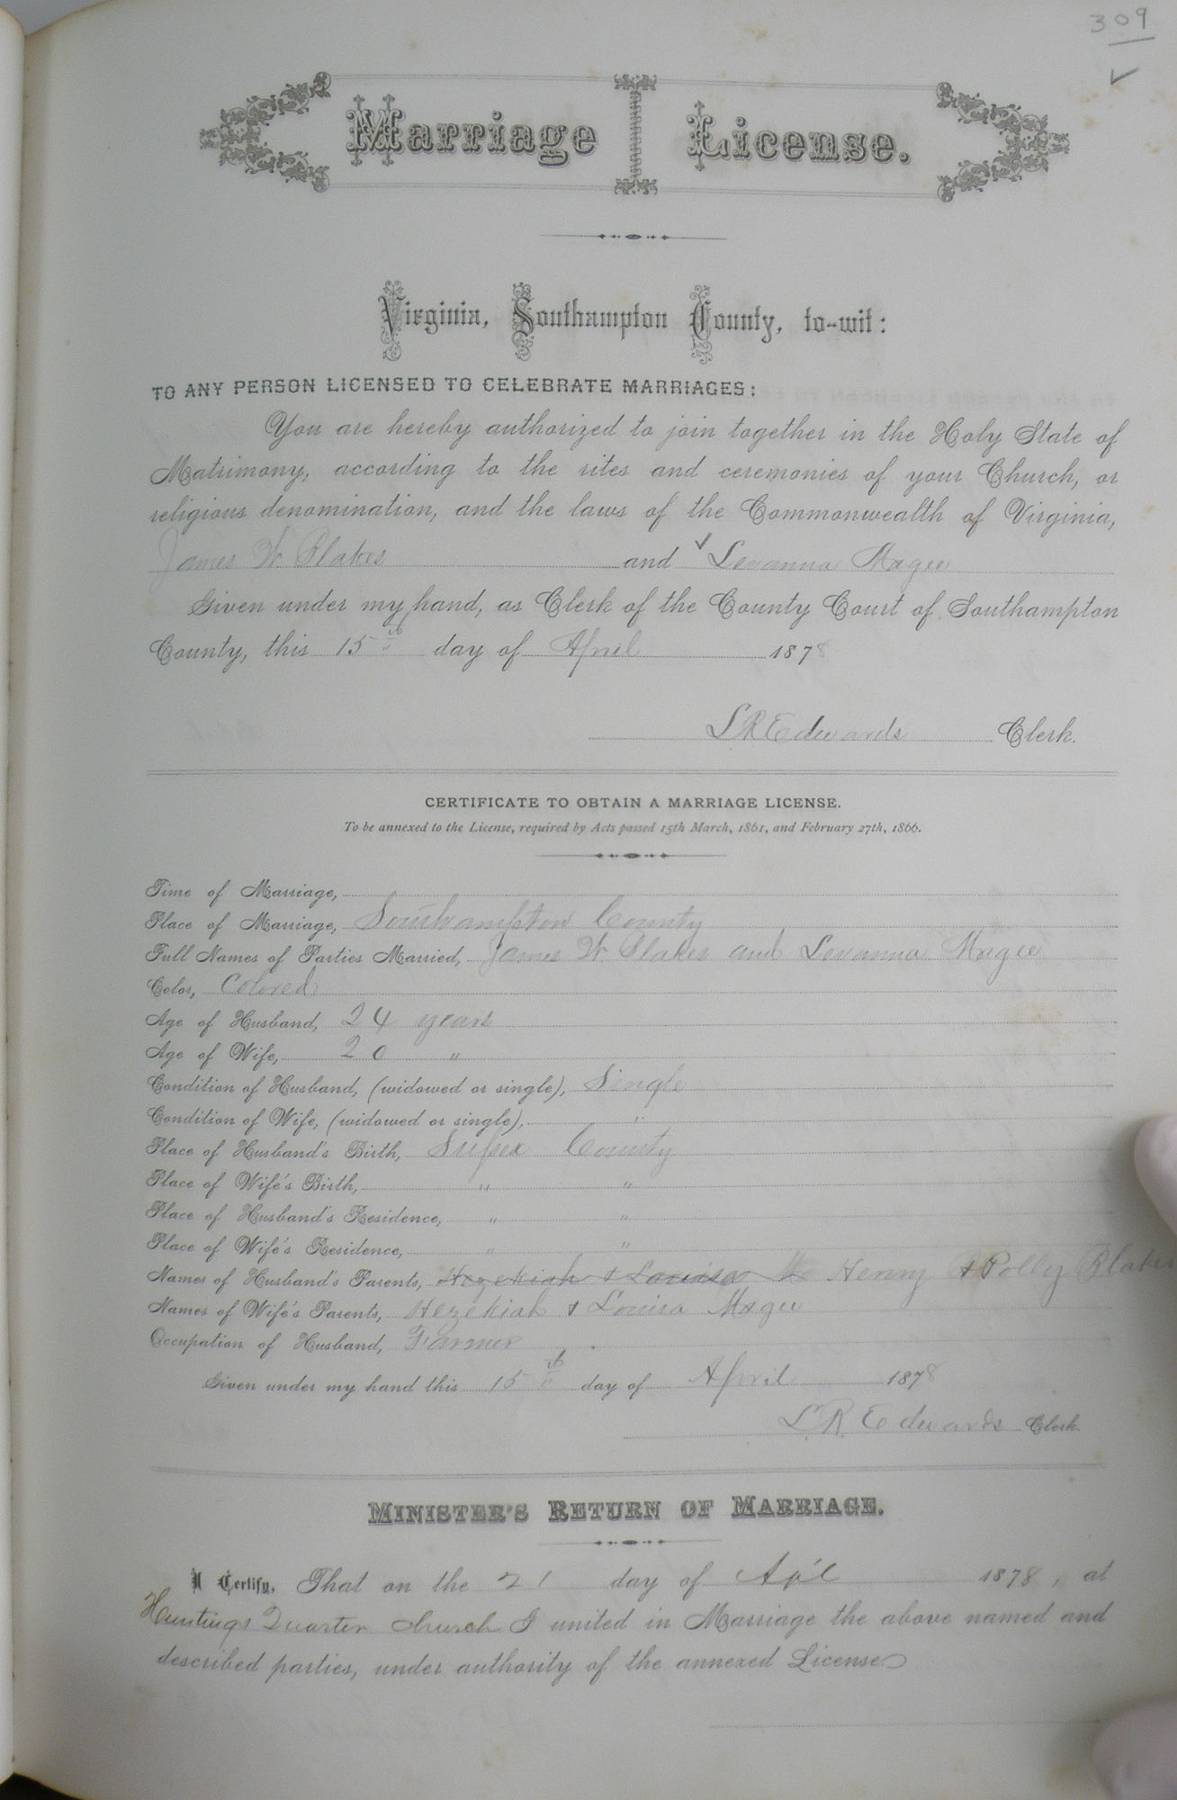 309
Marriage License.
Virginia, Southampton County, to-wit:
TO ANY PERSON LICENSED TO CELEBRATE MARRIAGES:
You are hereby authorized to join together in the Holy State of
Matrimony, according to the rites and ceremonies of your Church, or
religious denomination, and the laws of the Commonwealth of Virginia,
James W Blakes and ✓ Levanna Magee
Given under my hand, as Clerk of the County Court of Southampton
County, this 15th day of April 1878
L R Edwards Clerk.
CERTIFICATE TO OBTAIN A MARRIAGE LICENSE.
To be annexed to the License, required by Acts passed 15th March, 1861, and February 27th, 1866.
Time of Marriage,
Place of Marriage, Southampton County
Full Names of Parties Married, James W Blakes and Levanna Magee
Color, Colored
Age of Husband, 24 years
Age of Wife, 20 "
Condition of Husband, (widowed or single), Single
Condition of Wife, (widowed or single), "
Place of Husband's Birth, Sussex County
Place of Wife's Birth, " "
Place of Husband's Residence, " "
Place of Wife's Residence, " "
Names of Husband's Parents, Hezekiah & Louisa Henry & Polly Blakes
Names of Wife's Parents, Hezekiah & Louisa Magee
Occupation of Husband, Farmer
Given under my hand this 15th day of April 1878
L. R. Edwards Clerk.
MINISTER'S RETURN OF MARRIAGE.
I Certify, That on the 21 day of Apl 1878, at
Huntings Quarter church I united in Marriage the above named and
described parties, under authority of the annexed License